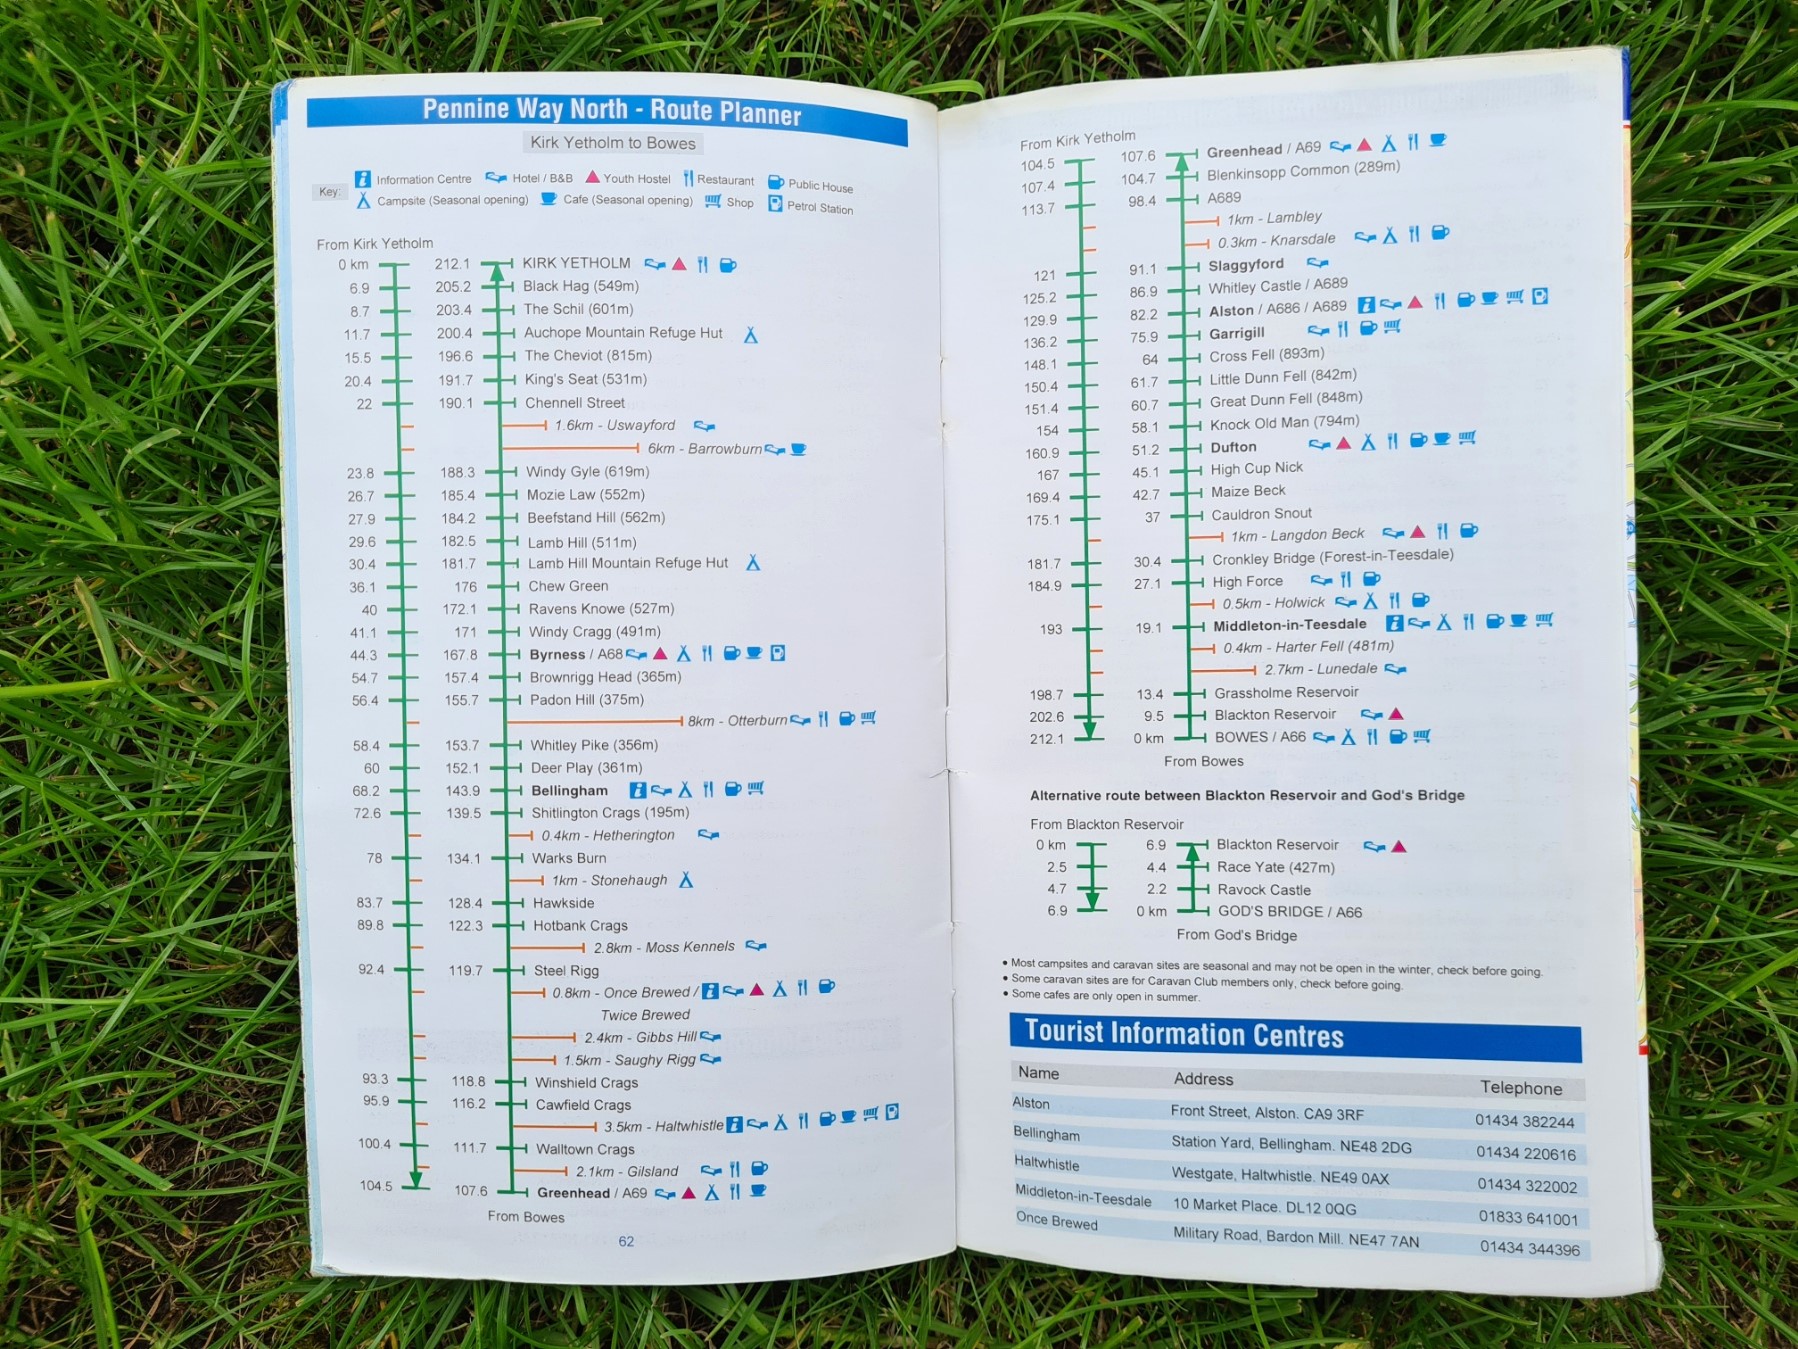 Pennine Way North - Route Planner
Kirk Yetholm to Bowes
Key: Information Centre Hotel / B&B Youth Hostel Restaurant Public House
Campsite (Seasonal opening) Cafe (Seasonal opening) Shop Petrol Station
From Kirk Yetholm
0 km 212.1 KIRK YETHOLM
6.9 205.2 Black Hag (549m)
8.7 203.4 The Schil (601m)
11.7 200.4 Auchope Mountain Refuge Hut
15.5 196.6 The Cheviot (815m)
20.4 191.7 King's Seat (531m)
22 190.1 Chennell Street
1.6km - Uswayford
6km - Barrowburn
23.8 188.3 Windy Gyle (619m)
26.7 185.4 Mozie Law (552m)
27.9 184.2 Beefstand Hill (562m)
29.6 182.5 Lamb Hill (511m)
30.4 181.7 Lamb Hill Mountain Refuge Hut
36.1 176 Chew Green
40 172.1 Ravens Knowe (527m)
41.1 171 Windy Cragg (491m)
44.3 167.8 Byrness / A68
54.7 157.4 Brownrigg Head (365m)
56.4 155.7 Padon Hill (375m)
8km - Otterburn
58.4 153.7 Whitley Pike (356m)
60 152.1 Deer Play (361m)
68.2 143.9 Bellingham
72.6 139.5 Shitlington Crags (195m)
0.4km - Hetherington
78 134.1 Warks Burn
1km - Stonehaugh
83.7 128.4 Hawkside
89.8 122.3 Hotbank Crags
2.8km - Moss Kennels
92.4 119.7 Steel Rigg
0.8km - Once Brewed /
Twice Brewed
2.4km - Gibbs Hill
1.5km - Saughy Rigg
93.3 118.8 Winshield Crags
95.9 116.2 Cawfield Crags
3.5km - Haltwhistle
100.4 111.7 Walltown Crags
2.1km - Gilsland
104.5 107.6 Greenhead / A69
From Bowes
62
From Kirk Yetholm
104.5 107.6 Greenhead / A69
107.4 104.7 Blenkinsopp Common (289m)
113.7 98.4 A689
1km - Lambley
0.3km - Knarsdale
121 91.1 Slaggyford
125.2 86.9 Whitley Castle / A689
129.9 82.2 Alston / A686 / A689
136.2 75.9 Garrigill
148.1 64 Cross Fell (893m)
150.4 61.7 Little Dunn Fell (842m)
151.4 60.7 Great Dunn Fell (848m)
154 58.1 Knock Old Man (794m)
160.9 51.2 Dufton
167 45.1 High Cup Nick
169.4 42.7 Maize Beck
175.1 37 Cauldron Snout
1km - Langdon Beck
181.7 30.4 Cronkley Bridge (Forest-in-Teesdale)
184.9 27.1 High Force
0.5km - Holwick
193 19.1 Middleton-in-Teesdale
0.4km - Harter Fell (481m)
2.7km - Lunedale
198.7 13.4 Grassholme Reservoir
202.6 9.5 Blackton Reservoir
212.1 0 km BOWES / A66
From Bowes
Alternative route between Blackton Reservoir and God's Bridge
From Blackton Reservoir
0 km 6.9 Blackton Reservoir
2.5 4.4 Race Yate (427m)
4.7 2.2 Ravock Castle
6.9 0 km GOD'S BRIDGE / A66
From God's Bridge
• Most campsites and caravan sites are seasonal and may not be open in the winter, check before going.
• Some caravan sites are for Caravan Club members only, check before going.
• Some cafes are only open in summer.
Tourist Information Centres
Name Address Telephone
Alston Front Street, Alston. CA9 3RF 01434 382244
Bellingham Station Yard, Bellingham. NE48 2DG 01434 220616
Haltwhistle Westgate, Haltwhistle. NE49 0AX 01434 322002
Middleton-in-Teesdale 10 Market Place. DL12 0QG 01833 641001
Once Brewed Military Road, Bardon Mill. NE47 7AN 01434 344396